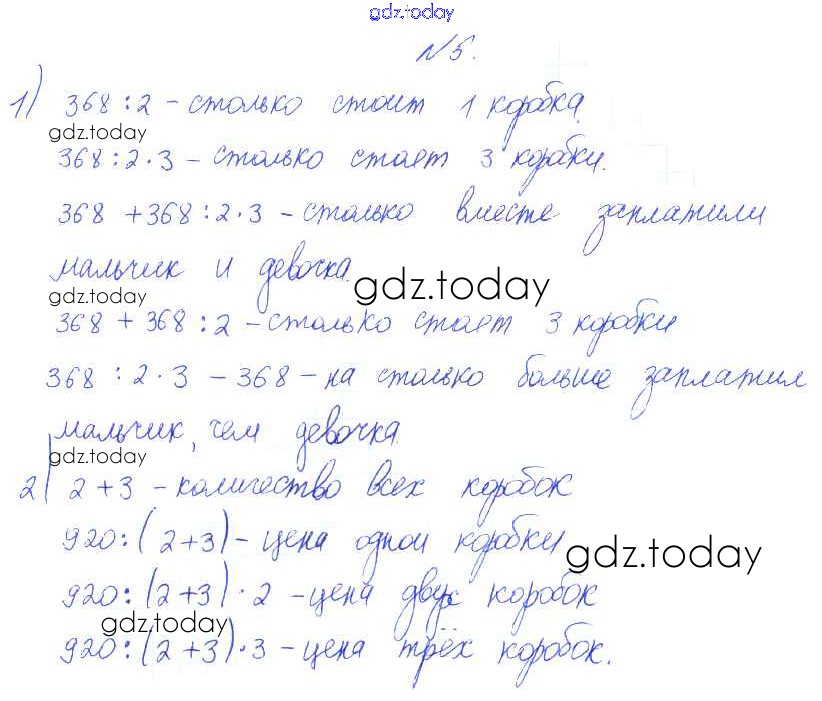 gdz.today
№5.
1) 368 : 2 - столько стоит 1 коробка.
gdz.today
368 : 2 · 3 - столько стоет 3 коробки.
368 + 368 : 2 · 3 - столько вместе заплатили
мальчик и девочка.
gdz.today
gdz.today
368 + 368 : 2 - столько стоет 3 коробки
368 : 2 · 3 - 368 - на столько больше заплатил
мальчик, чем девочка.
gdz.today
2) 2 + 3 - количество всех коробок
920 : (2 + 3) - цена одной коробки
gdz.today
920 : (2 + 3) · 2 - цена двух коробок
gdz.today
920 : (2 + 3) · 3 - цена трёх коробок.